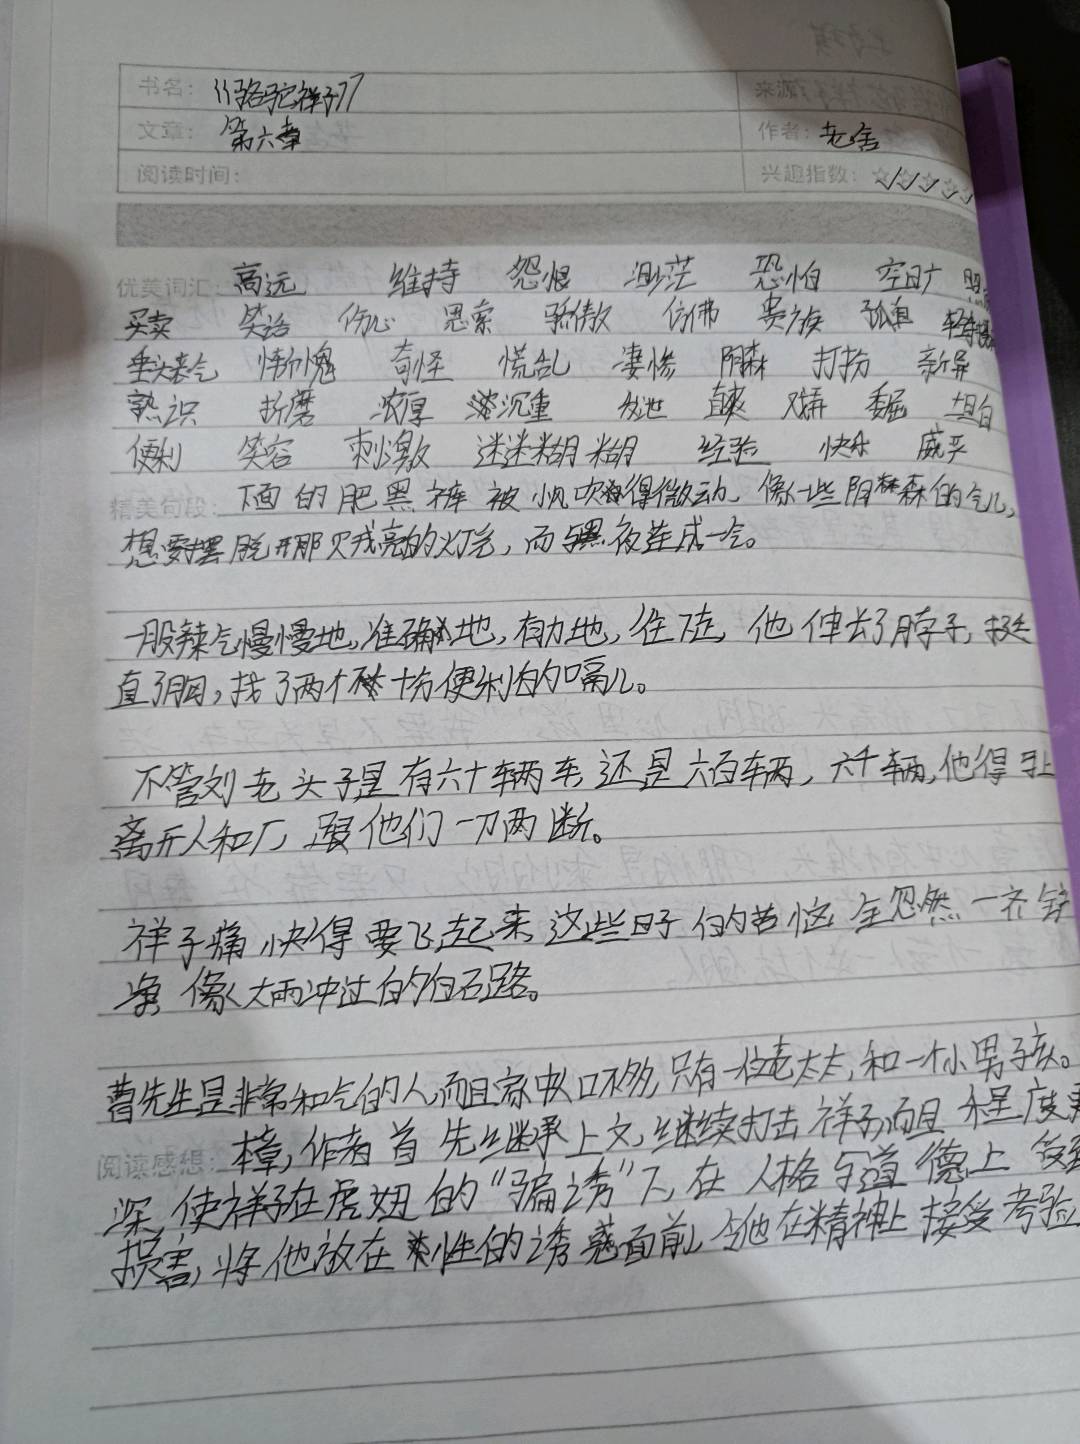 书名：《骆驼祥子》 来源：
文章：第六章 作者：老舍
阅读时间： 兴趣指数：☆☆☆☆☆
优美词汇：高远 维持 怨恨 渺茫 恐怕 空旷
买卖 笑话 伤心 思索 骄傲 仿佛 贵族 孤直
垂头丧气 惭愧 奇怪 慌乱 凄惨 阴森 打扮 新异
熟识 折磨 浓厚 沉重 委屈 坦白
便利 笑容 刺激 迷迷糊糊 经验 快乐 威严
精美句段：下面的肥黑裤被小风吹得微动，像一些阴森的气儿，
想要摆脱开那贼亮的灯光，而与黑夜连成一气。
一股辣气慢慢地，准确地，有力地，往下走，他伸长了脖子，挺
直了胸，找了两个不十分便利的嗝儿。
不管刘老头子是有六十辆车，还是六百辆，六千辆，他得马上
离开人和厂，跟他们一刀两断。
祥子痛快得要飞起来，这些日子的苦恼全忽然一齐铲
净，像大雨冲过的白石路。
曹先生是非常和气的人，而且家中人口不多，只有一位老太太，和一个小男孩。
阅读感想：本章，作者首先继承上文，继续打击祥子，而且程度更
深，使祥子在虎妞的“骗诱”下，在人格与道德上受到
损害，将他放在性的诱惑面前，令他在精神上接受考验